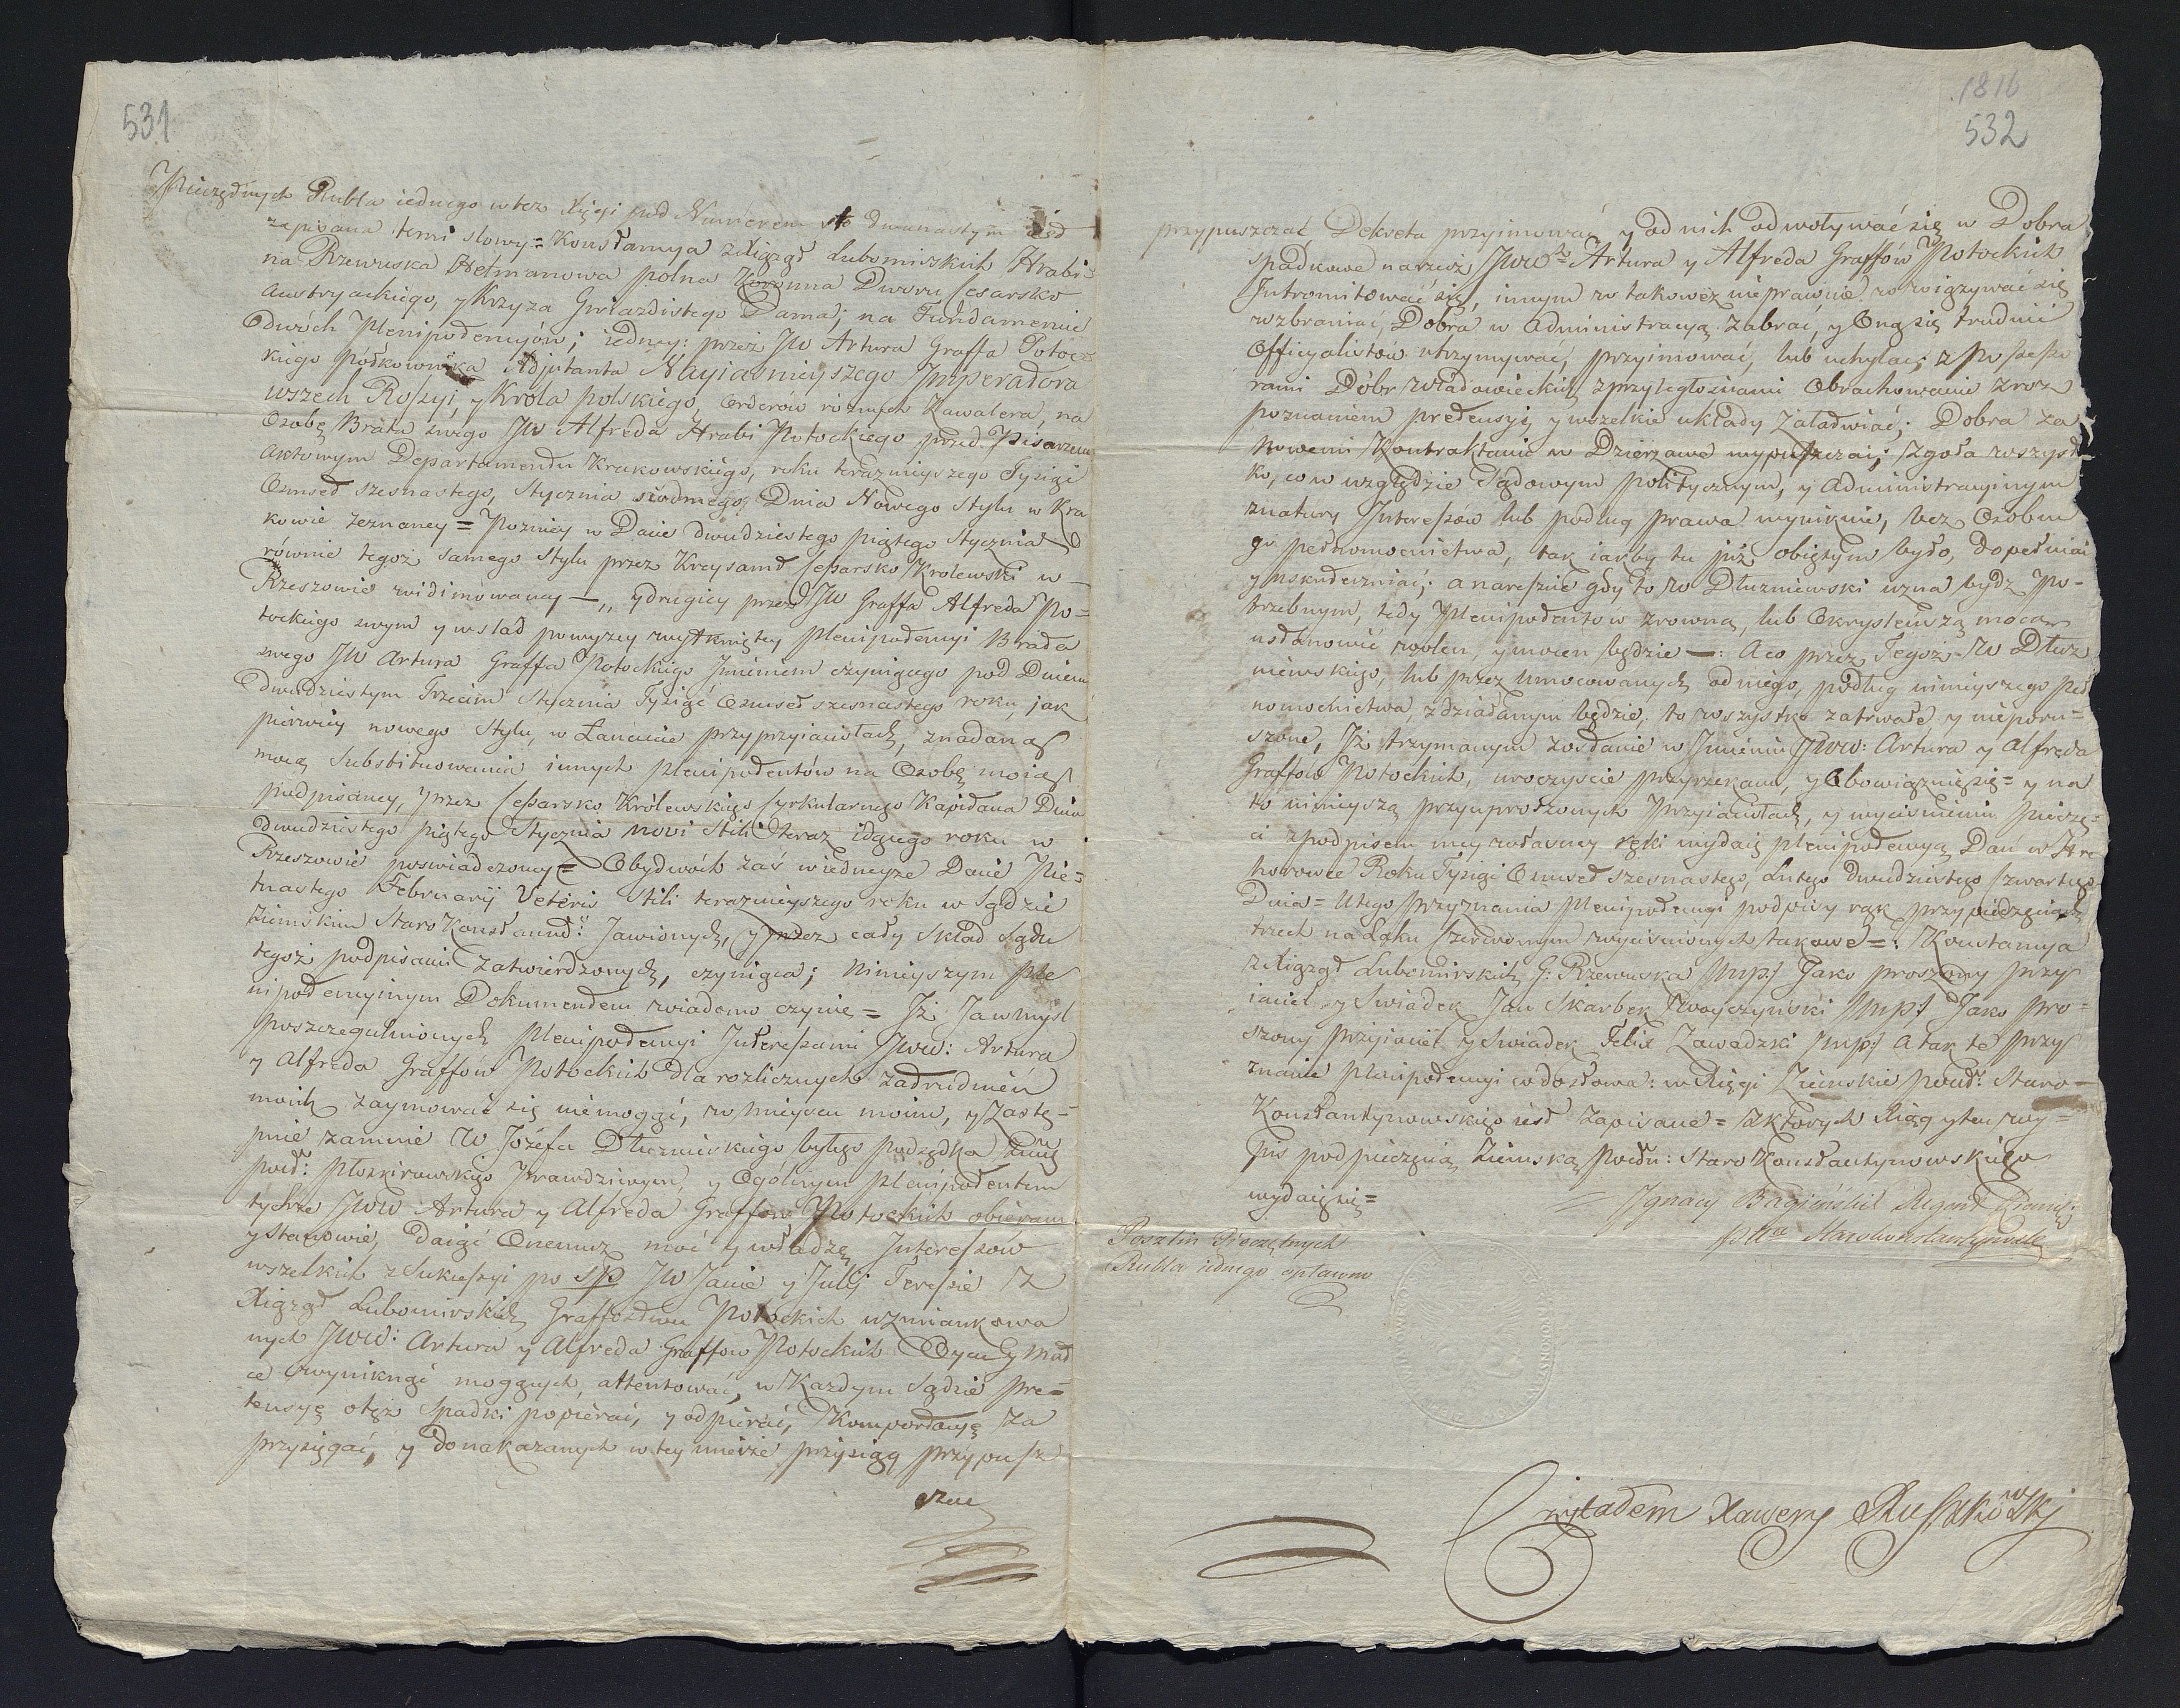 531
Pieczętnych Rubla iednego w tez Xięgi pod Numerem sto dwunastym iest
zapisana temi słowy = Konstancya z Xiążąt Lubomirskich Hrabi=
na Rzewuska Hetmanowa polna Koronna Dworu Cesarsko
Austryackiego, y Krzyza Gwiazdistego Dama; na Fundamencie
dwóch Plenipotencyów; iedney: przez JW Artura Graffa Potoc=
kiego Półkownika Adjutanta Nayiasnieyszego Imperadora
wszech Rossyi, y Króla polskiego, Orderów róznych Kawalera, na
Osobę Brata swego JW Alfreda Hrabi Potockiego przed Pisarzem
Aktowym Departamentu Krakowskiego, roku terazniejszego Tysiąc
Osmset szesnastego, Stycznia siódmego Dnia Nowego Stylu w Kra
kowie zeznaney = Pozniey w Dacie dwudziestego piątego Stycznia
równie tegoz samego Stylu przez Kreysamt Cesarsko Krolewski w
Rzeszowie widimowaney —,, y drugiey przez JW Graffa Alfreda Po=
tockiego swym y w slad powyzey wytkniętey plenipotencyi Brata
swego JW Artura Graffa Potockiego Imieniem czyniącego pod Dniem
dwudziestym Trzecim Stycznia Tysiąc Osmset szesnastego roku, jak
pierwiey nowego Stylu, w Łancucie przy przyiaciołach, z nadaną
mocą Substituowania innych plenipotentów na Osobę moią
podpisaney, y przez Cesarsko Królewskiego Cyrkularnego Kapitana Dnia
dwudziestego piątego Stycznia novi Stili teraz idącego roku w
Rzeszowie poswiadczoney = Obydwóch zaś w iedneyze Dacie Pie=
tnastego Februarij Veteris Stili terazniejszego roku w Sądzie
Ziemskim Staro Konstanttt: Jawionych, y przez cały Skład Sądu
tegoż podpisami zatwierdzonych, czyniąca; Ninieyszym ple
nipotencyinym Dokumentem wiadomo czynię = Iż Ja w mysl
poszczegulnionych plenipotencyi Interessami JWW: Artura
y Alfreda Graffów Potockich dla rozlicznych zatrudnień
moich zaymować się niemogąc, w mieyscu moim, y Zastę=
pnie zamnie W Józefa Dłuzniewskiego byłego podsędka Ziem:
powt: płoskirowskiego Prawdziwym, y Ogólnym plenipotentem
tychże JWW Artura y Alfreda Graffow Potockich obieram
y Stanowie, Daiąc Onemuz moc y władzę Interessow
wszelkich z Sukcessyi po SP JW Janie y Julij Teressie z
Xiążąt Lubomirskich Graffostwu Potockich wzmiankowa
nych JWW: Artura y Alfreda Graffow Potockich Oycu y Mat
ce wyniknąć mogących attentować, w Kazdym Sądzie pre=
tensyę otęz Spadki popierać, y odpierać, Komportacyę za
przysięgać, y do nakazanych w tey mierze przysiąg przypusz
czac
1816
532
przypuszczać Dekreta przyimować y od nich odwoływać się w Dobra
spadkowe narzecz JWWch Artura y Alfreda Graffów Potockich
Intromitować się, innym w takowez nieprawnie w wiązywać się
wzbraniać, Dobra w Administracyą Zabrać, y Oną się trudnić
Officyalistów utrzymywać, przyimować, lub uchylać; z Possesso
rami Dóbr władowieckich z przyległościami Obrachowanie z roz
poznaniem pretensyi, y wszelkie układy Załatwiać; Dobra za
Nowemi Kontraktami w Dzierzawę wypuszczać; Zgoła wszyst
ko, co w względzie Sądowym politycznym, y Administracyinym
z natury Interessów lub podług prawa wyniknie, bez Osobne
go pełnomocnictwa, tak iak by tu już obiętym było, dopełniać
y uskuteczniać; a nareszcie gdy to W Dłuzniewski uzna bydz Po=
trzebnym, tedy Plenipotentów z rowną, lub Okrysleńszą mocą
ustanowić wolen, y mocen będzie —: A co przez Tegoz W Dłuz
niewskiego, lub przez umocowanych od niego, podług ninieyszego peł
nomocnictwa, zdziałanym będzie, to wszystko zatrwałe y nieporu=
szone, Iż trzymanym zostanie w Imieniu JWW: Artura y Alfreda
Graffów Potockich, uroczyscie przyrzekam, y Obowiązuię się = y na
to ninieyszą przy uproszonych Przyiaciołach, y wycisnieniu pieczę=
ci z podpisem mey własney ręki wydaię plenipotencyą Dan w
Roku Tysiąc Osmset szesnastego, Lutego dwudziestego Czwartego
Dnia = U tego przyznania plenipotencyi podpisy rąk przy pieczęciach
trzech na Laku Czerwonym wycisnionych takowe =: Konstancya
z Xiążąt Lubomirskich H: Rzewuska Mpp Jako proszony przy
iaciel y Swiadek Jan Skarbek Mpp Jako pro=
szony przyiaciel y Swiadek Felix Zawadzki Mpp A tak te przy
znanie plenipotencyi co do słowa: w Xięgi Ziemskie powtt: Staro=
Konstantynowskiego iest zapisane = Z ktorych Xiąg y ten wy=
pis pod pieczęcią Ziemską powttu: Staro Konstantynowskiego
wydaię się =
Ignacy Regent Ziemsk:
pttu Starokonstantynowski
Poszlin Pieczętnych
Rubla iednego opłacono
Czytałem Xawery Ruszkowski